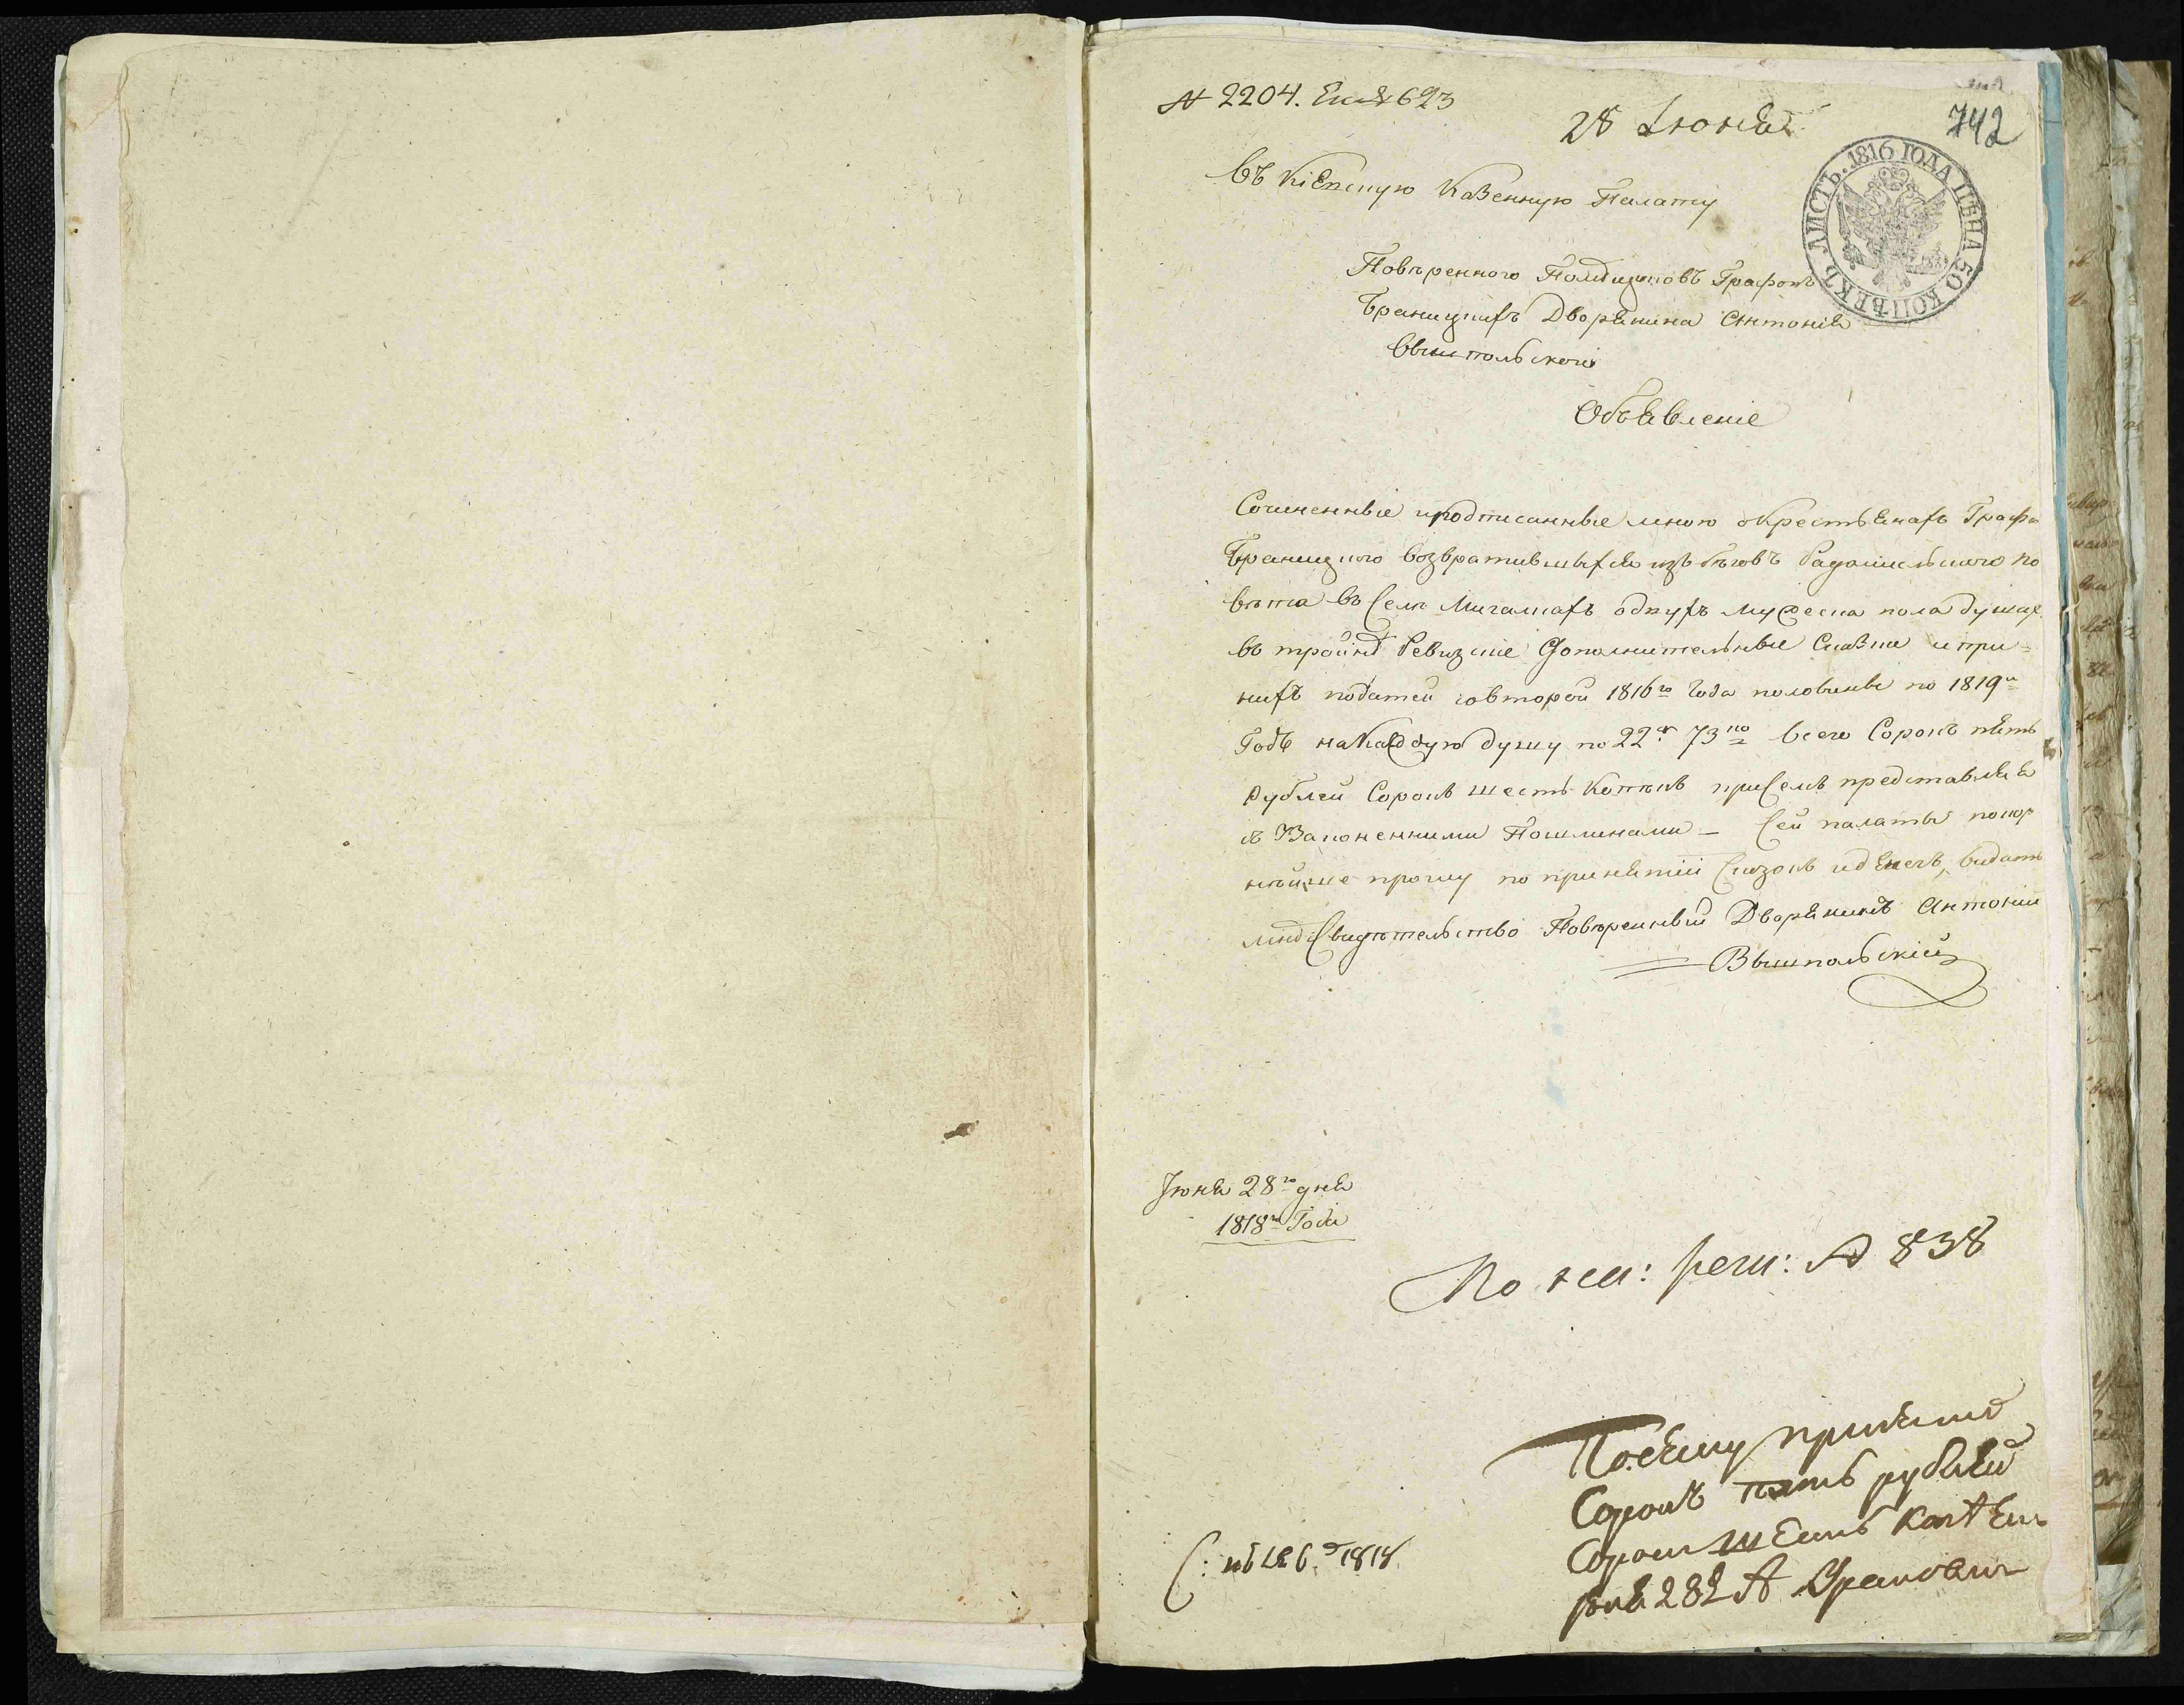 № 2204.
28 Июня
742
ЛИСТЪ. 1816 ГОДА ЦѢНА 50 КОПѢЕКЪ.
Въ Кіевскую Казенную Палату
Повѣренного Помѣщиковъ Графовъ
Браницкихъ Дворянина Антонія
Вышпольского
Объявленіе
Сочиненные и подписанные мною окрестьянахъ Графа
Браницкого возвратившыхся изъ бѣговъ Радомисльского по
вѣта въ селѣ двухъ мужеска пола душах
въ тройнѣ Ревизскіе Дополнительные Сказки и при=
нихъ податей совторой 1816го Года половины по 1819й
Годъ на каждую душу по 22 р 73 ко всего Сорокъ пять
Рублей Сорокъ шесть Копѣекъ при семъ представляя
съ Законенними Пошлинами – сей палаты покор
нѣйше прошу по принятіи Сказокъ и денегъ, видать
мнѣ Свидѣтельство Повѣренный Дворянинъ Антоній
Вышпольскій
Іюня 28го дня
1818го Года
По рев: № 838
По сему принято
Сорокъ пять рублей
Сорок шесть копѣек
1818